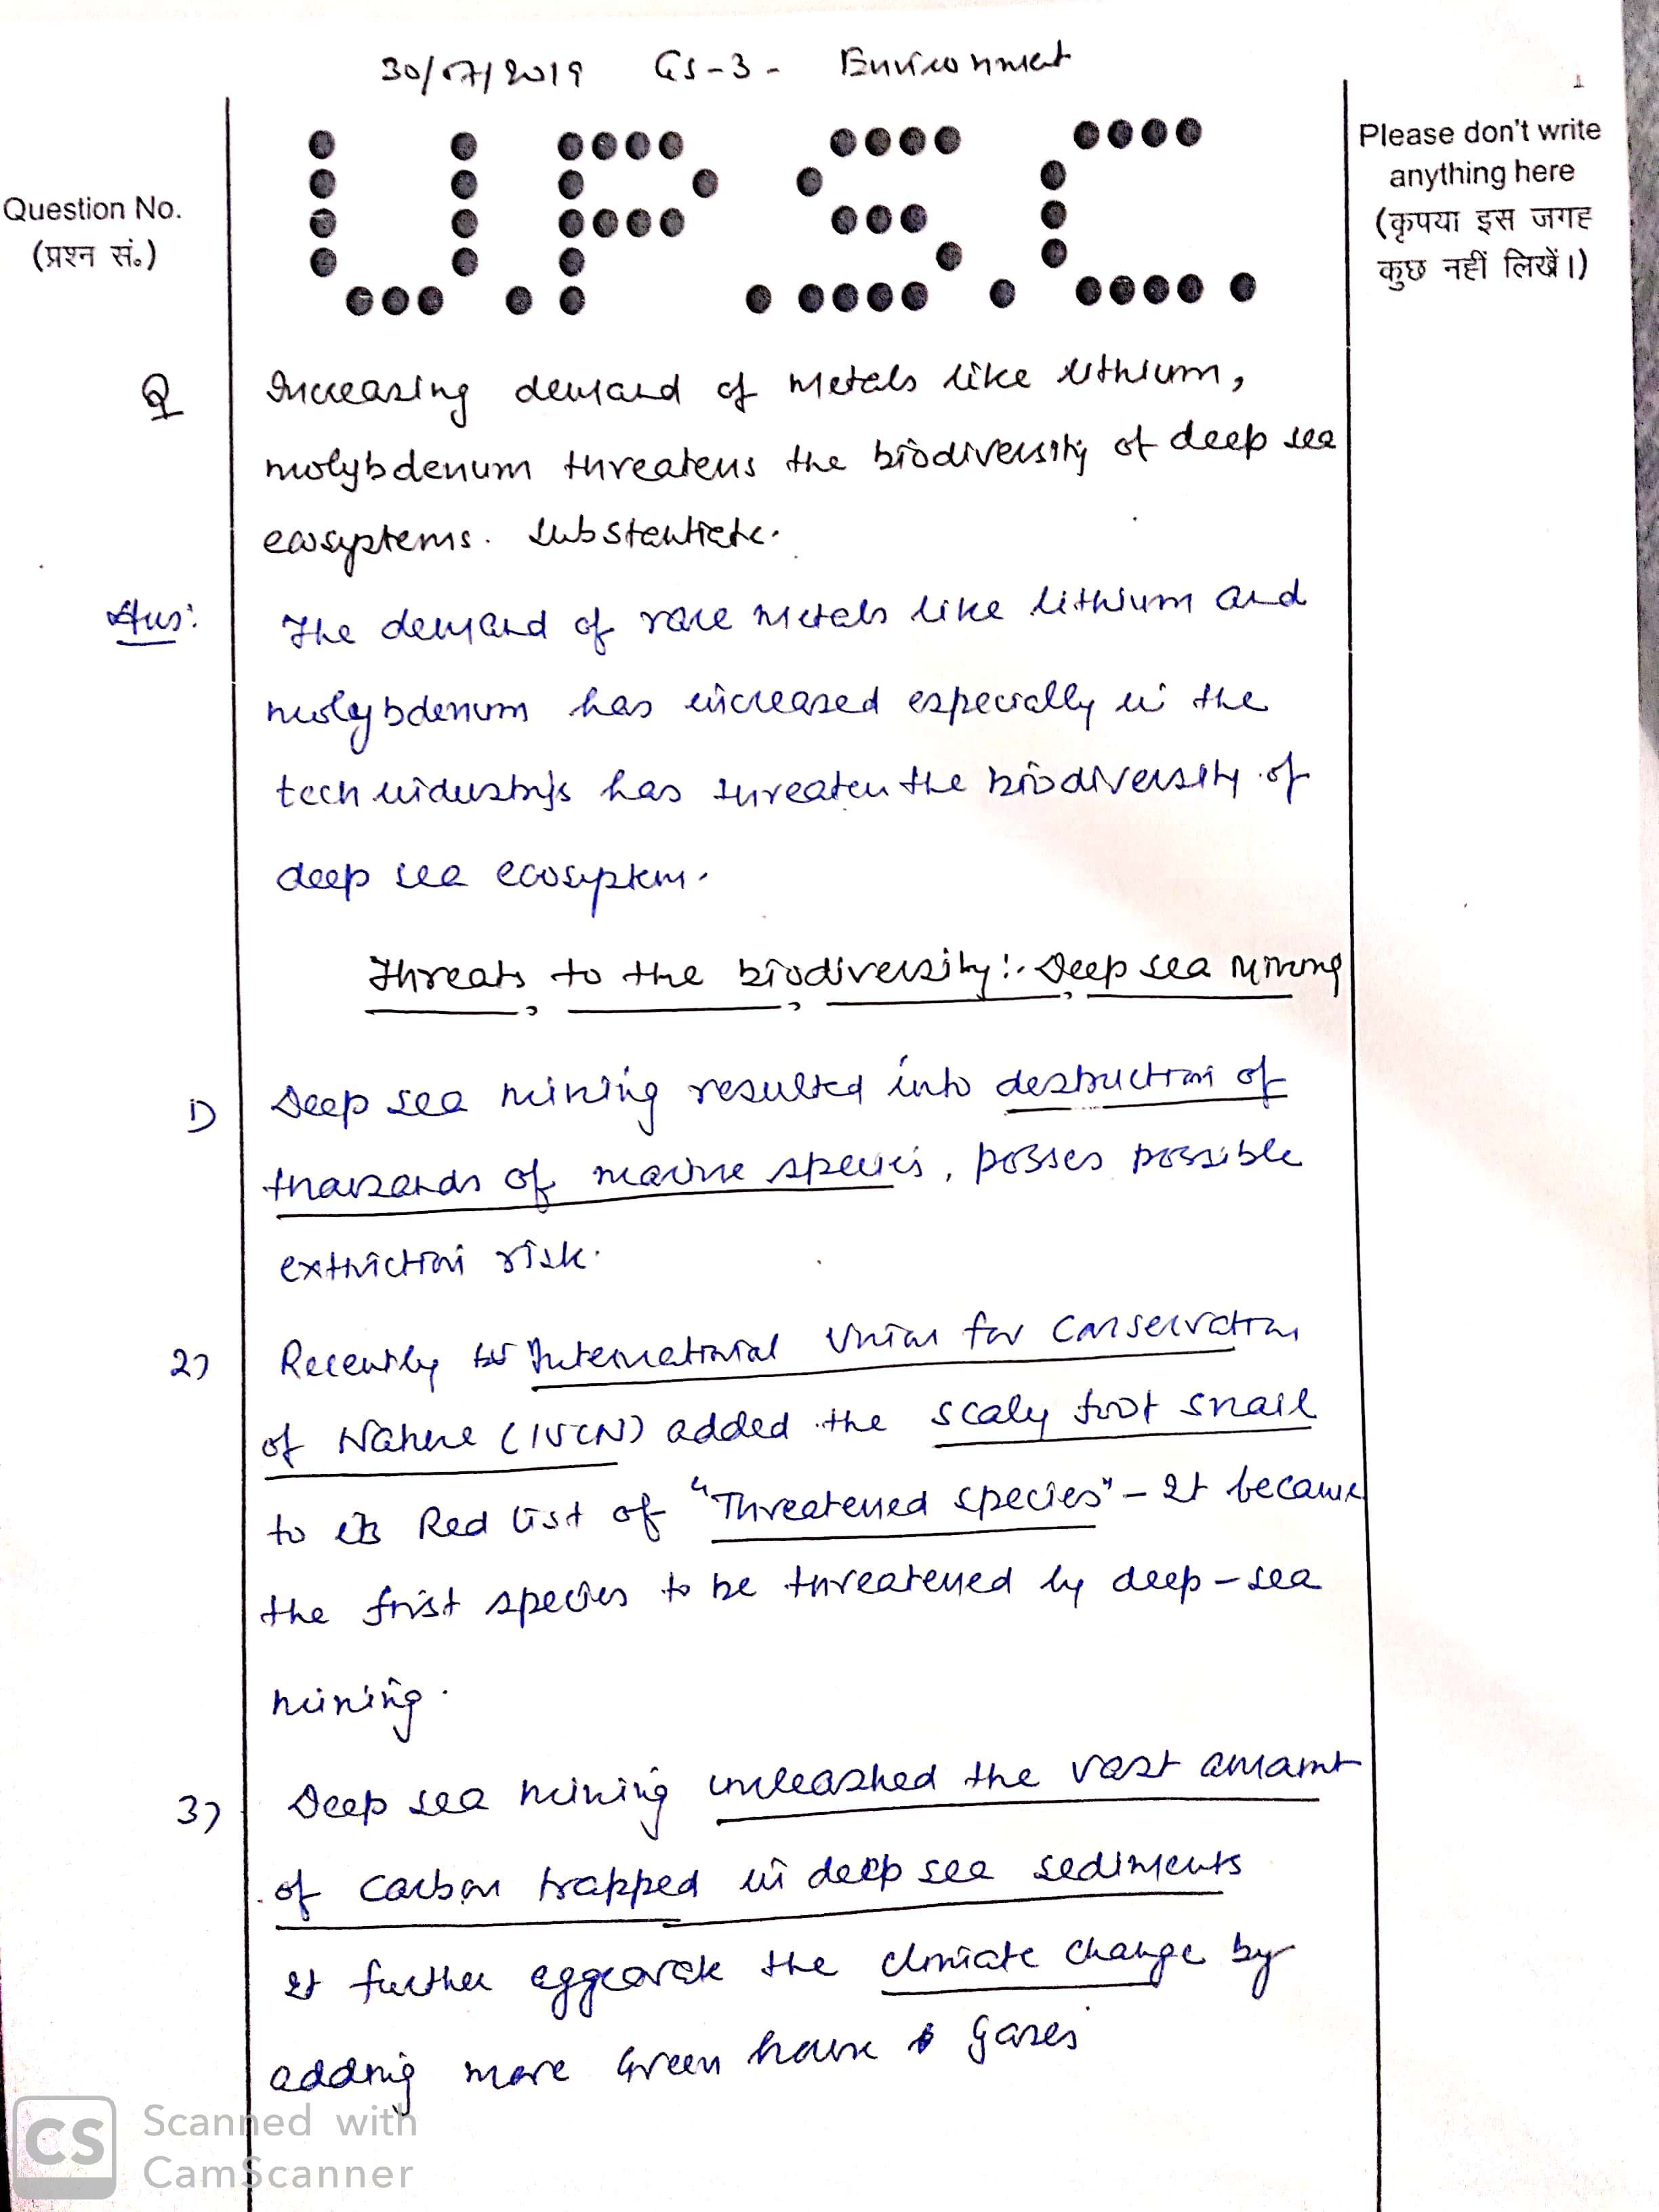 30/07/2019 GS-3- Environment
1
U.P.S.C.
Please don't write
anything here
(कृपया इस जगह
कुछ नहीं लिखें।)
Question No.
(प्रश्न सं.)
Q Increasing demand of metals like lithium,
molybdenum threatens the biodiversity of deep sea
ecosyptems. Substentiate.
Ans: The demand of rare metals like lithium and
molybdenum has increased especially in the
tech industrys has threaten the biodiversity of
deep sea ecosyptem.
Threats to the biodiversity:- Deep sea mining
1) Deep sea mining resulted into destruction of
thousands of marine species, posses possible
extinction risk.
2) Recently International Union for Conservation
of Nature (IUCN) added the scaly foot snail
to its Red list of "Threatened species" - It became
the frist species to be threatened by deep-sea
mining.
3) Deep sea mining unleashed the vast amount
of carbon trapped in deep sea sediments
It further the climate change by
adding more Green house gases
CS Scanned with
CamScanner